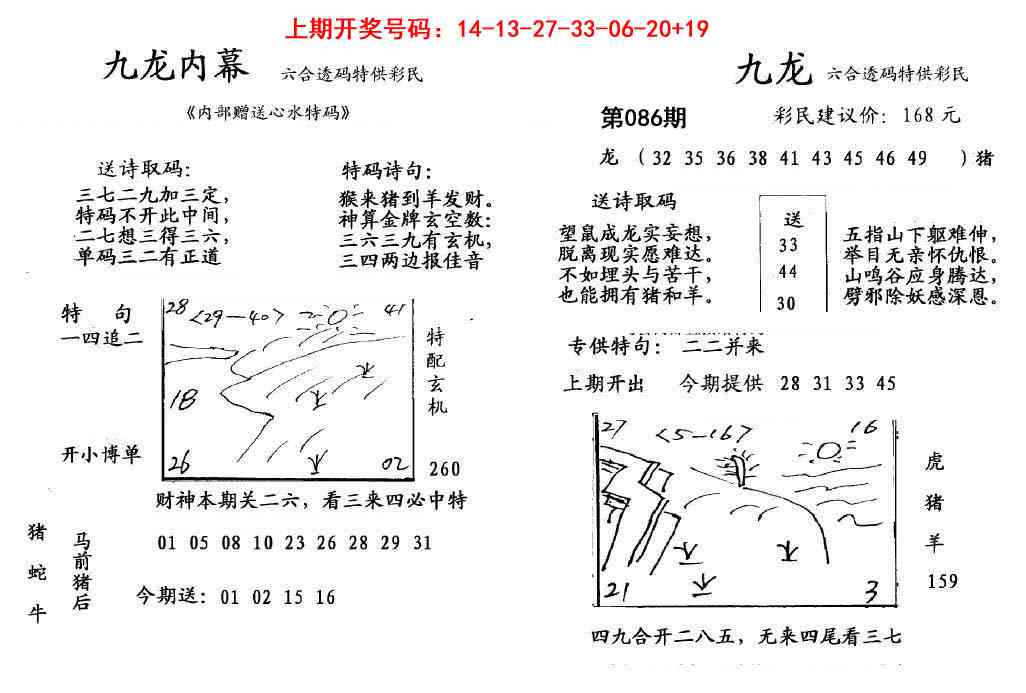 上期开奖号码：14-13-27-33-06-20+19
九龙内幕 六合透码特供彩民
《内部赠送心水特码》
送诗取码：
三七二九加三定，
特码不开此中间，
二七想三得三六，
单码三二有正道
特码诗句：
猴来猪到羊发财。
神算金牌玄空数：
三六三九有玄机，
三四两边报佳音
特 句
一四追二
开小博单
28 <29-40> 41
18
26 02
特配玄机
260
财神本期关二六，看三来四必中特
猪蛇牛
马前猪后
01 05 08 10 23 26 28 29 31
今期送：01 02 15 16
九龙 六合透码特供彩民
第086期 彩民建议价：168元
龙（32 35 36 38 41 43 45 46 49 ）猪
送诗取码
望鼠成龙实妄想，
脱离现实愿难达。
不如埋头与苦干，
也能拥有猪和羊。
送
33
44
30
五指山下躯难伸，
举目无亲怀仇恨。
山鸣谷应身腾达，
劈邪除妖感深恩。
专供特句：二二并来
上期开出 今期提供 28 31 33 45
27 <5-16> 16
21 3
虎
猪
羊
159
四九合开二八五，无来四尾看三七